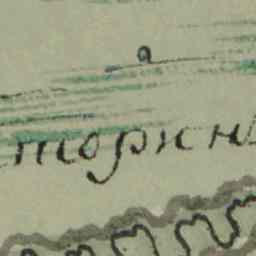 а
торин